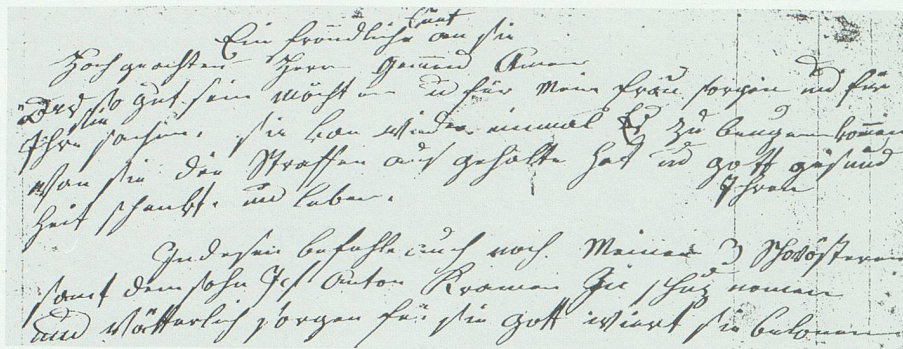 Ein freündliche bitt an sie
Hoch geachter Herr Gemeind Aman
Das sie so gut sein möchten u für Meine frau sorgen und für
Ihre sachen. sie kan wieder einmal zu bougen komen
wan sie die Straffen aus gehalte hat und gott gesund
heit schenkt. und leben. Ihren
Indessen befehle auch noch Meinen 3 Schwösteren
samt dem sohn Jos Anton Kramer In schuz nemen
und Vätterlich sorgen für sie gott wiert sie belonen